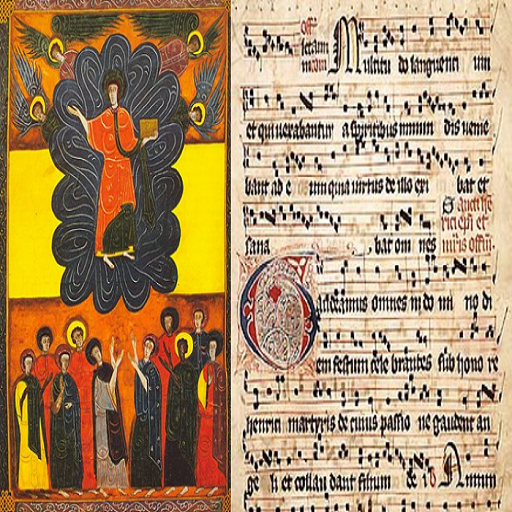 off
Multitu do languenti um
et qui vexabantur a spiritibus inmun dis venie
bant ad e um quia virtus de illo exi bat et
sana bat om nes
Gaudeamus omnes in do mi no di
em festum cele brantes sub hono re
henrici martyris de cuius passio ne gaudent an
ge li et collau dant filium de i